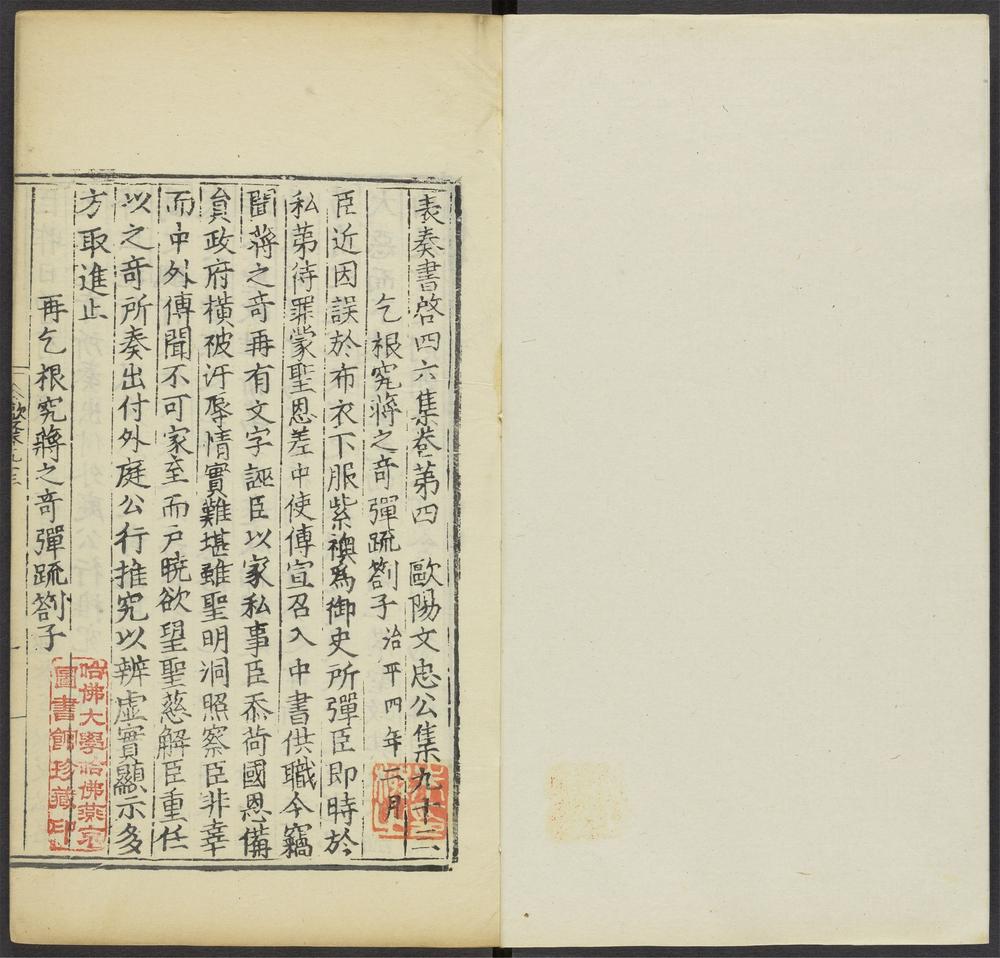 表奏書啓四六集卷第四　歐陽文忠公集九十三
乞根究蔣之奇彈䟽劄子治平四年二月
臣近因誤於布衣下服紫襖爲御史所彈臣即時於
私第待罪蒙聖恩差中使傳宣召入中書供職今竊
聞蔣之奇再有文字誣臣以家私事臣忝荷國恩備
貟政府橫被汙辱情實難堪雖聖明洞照察臣非辜
而中外傳聞不可家至而户曉欲望聖慈解臣重任
以之奇所奏出付外庭公行推究以辨虛實顯示多
方取進止
再乞根究蔣之奇彈䟽劄子
哈佛大學哈佛燕京
圖書館珍藏印